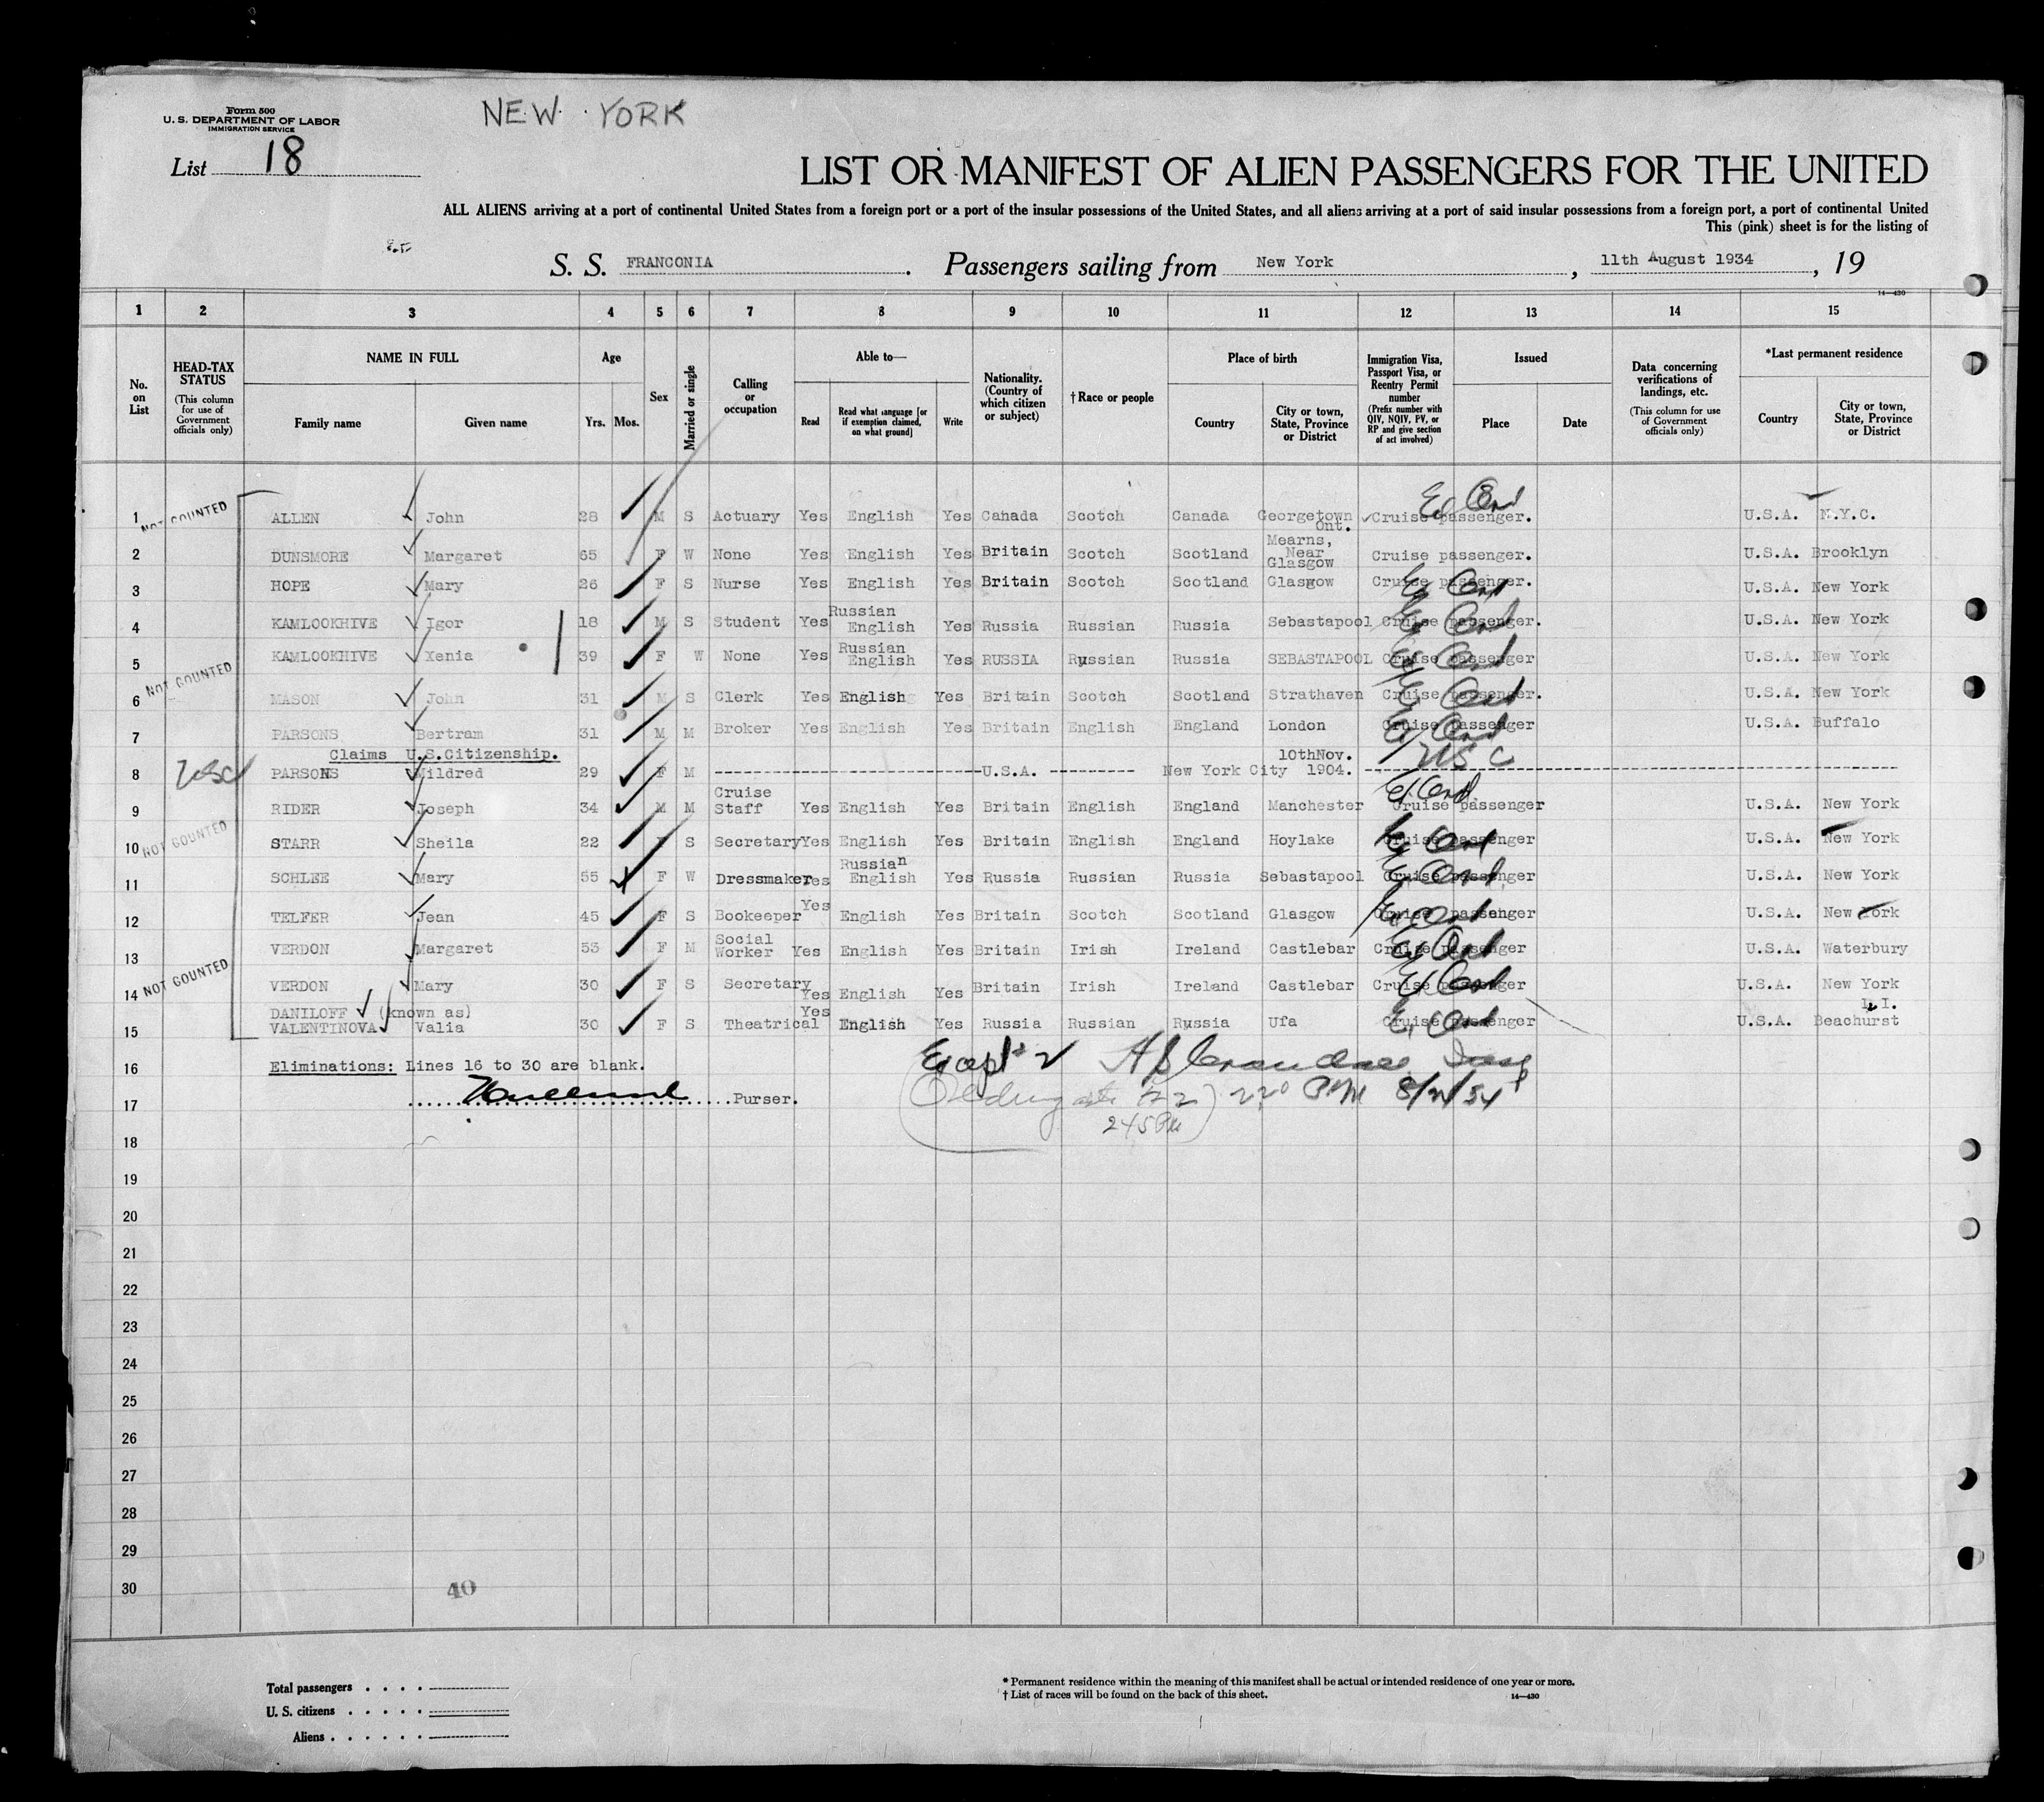 Form 500
U. S. DEPARTMENT OF LABOR
IMMIGRATION SERVICE
NEW YORK
List 18
LIST OR MANIFEST OF ALIEN PASSENGERS FOR THE UNITED
ALL ALIENS arriving at a port of continental United States from a foreign port or a port of the insular possessions of the United States, and all aliens arriving at a port of said insular possessions from a foreign port, a port of continental United
This (pink) sheet is for the listing of
S. S. FRANCONIA. Passengers sailing from New York, 11th August 1934, 19
14—430
1 2 3 4 5 6 7 8 9 10 11 12 13 14 15
No. on List
HEAD-TAX STATUS (This column for use of Government officials only)
NAME IN FULL Family name Given name
Age Yrs. Mos.
Sex
Married or single
Calling or occupation
Able to— Read Read what language [or if exemption claimed, on what ground] Write
Nationality. (Country of which citizen or subject)
†Race or people
Place of birth Country City or town, State, Province or District
Immigration Visa, Passport Visa, or Reentry Permit number (Prefix number with QIV, NQIV, PV, or RP and give section of act involved)
Issued Place Date
Data concerning verifications of landings, etc. (This column for use of Government officials only)
*Last permanent residence Country City or town, State, Province or District
1 NOT COUNTED ALLEN John 28 M S Actuary Yes English Yes Canada Scotch Canada Georgetown Ont. Cruise passenger. U.S.A. N.Y.C.
2 DUNSMORE Margaret 65 F W None Yes English Yes Britain Scotch Scotland Mearns, Near Glasgow Cruise passenger. U.S.A. Brooklyn
3 HOPE Mary 26 F S Nurse Yes English Yes Britain Scotch Scotland Glasgow Cruise passenger. U.S.A. New York
4 KAMLOOKHIVE Igor 18 M S Student Yes Russian English Yes Russia Russian Russia Sebastapool Cruise passenger. U.S.A. New York
5 KAMLOOKHIVE Xenia 39 F W None Yes Russian English Yes RUSSIA Russian Russia SEBASTAPOOL Cruise passenger U.S.A. New York
6 NOT COUNTED MASON John 31 M S Clerk Yes English Yes Britain Scotch Scotland Strathaven Cruise passenger. U.S.A. New York
7 PARSONS Bertram 31 M M Broker Yes English Yes Britain English England London Cruise passenger U.S.A. Buffalo
Claims U.S.Citizenship. 10thNov.
8 USC PARSONS Mildred 29 F M U.S.A. New York City 1904. USC
9 RIDER Joseph 34 M M Cruise Staff Yes English Yes Britain English England Manchester Cruise passenger U.S.A. New York
10 NOT COUNTED STARR Sheila 22 F S Secretary Yes English Yes Britain English England Hoylake Cruise passenger U.S.A. New York
11 SCHLEE Mary 55 F W Dressmaker Yes Russian English Yes Russia Russian Russia Sebastapool Cruise passenger U.S.A. New York
12 TELFER Jean 45 F S Bookeeper Yes English Yes Britain Scotch Scotland Glasgow Cruise passenger U.S.A. New York
13 VERDON Margaret 53 F M Social Worker Yes English Yes Britain Irish Ireland Castlebar Cruise passenger U.S.A. Waterbury
14 NOT COUNTED VERDON Mary 30 F S Secretary Yes English Yes Britain Irish Ireland Castlebar Cruise passenger U.S.A. New York
15 DANILOFF (known as) VALENTINOVA Valia 30 F S Theatrical Yes English Yes Russia Russian Russia Ufa Cruise passenger U.S.A. L.I. Beachurst
16 Eliminations: Lines 16 to 30 are blank.
17 Purser. 2 20 PM
18 245 PM
19
20
21
22
23
24
25
26
27
28
29
30
40
Total passengers
U. S. citizens
Aliens
* Permanent residence within the meaning of this manifest shall be actual or intended residence of one year or more.
† List of races will be found on the back of this sheet.
14—430